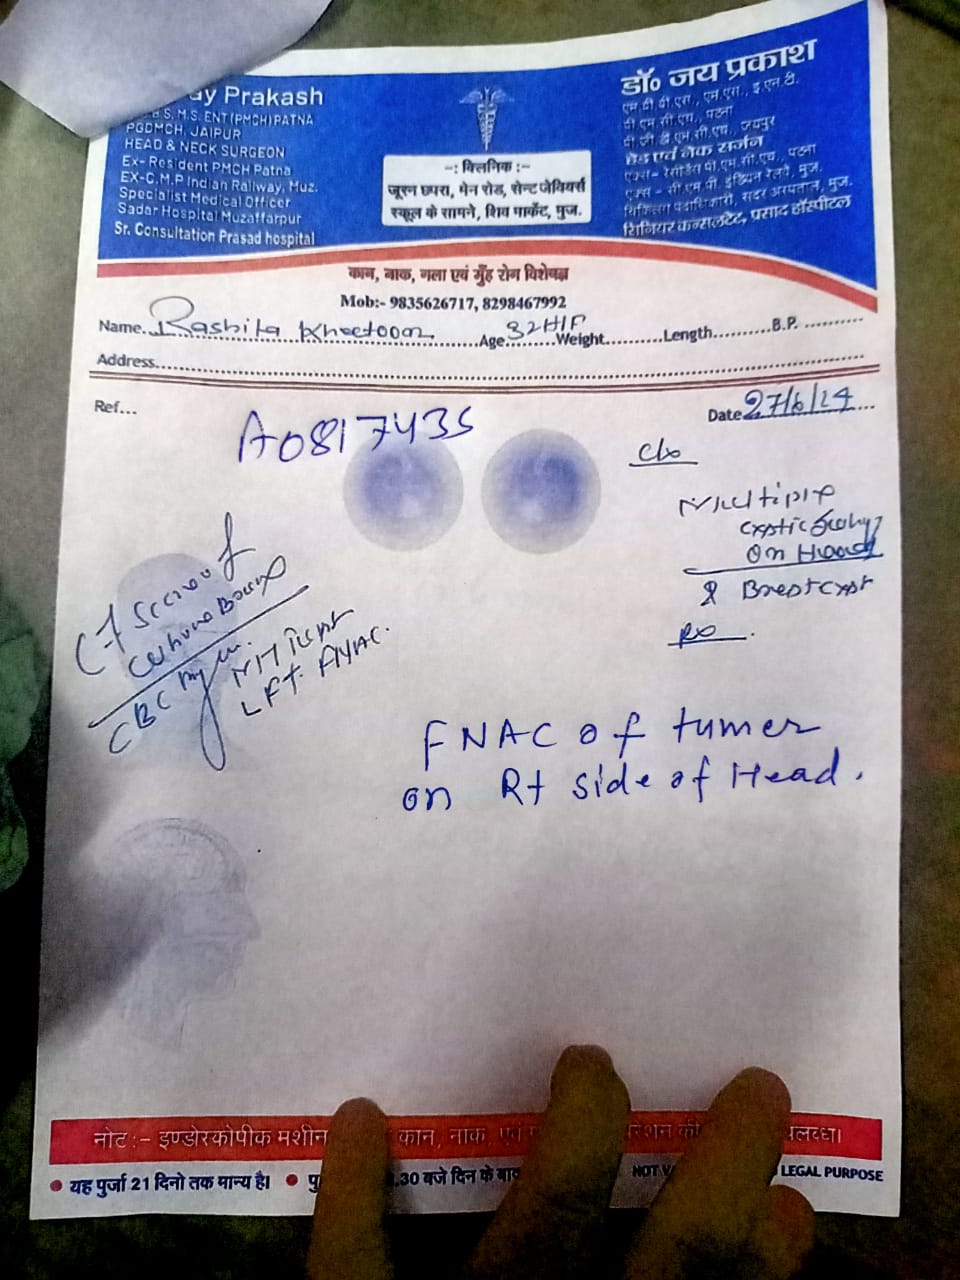 ay Prakash
S. M.S. ENT (PMCH) PATNA
PGDMCH, JAIPUR
HEAD & NECK SURGEON
Ex- Resident PMCH Patna
EX-C.M.P Indian Railway, Muz.
Specialist Medical Officer
Sadar Hospital Muzaffarpur
Sr. Consultation Prasad hospital
-: क्लिनिक :-
जूरन छपरा, मेन रोड, सेन्ट जेवियर्स
स्कूल के सामने, शिव मार्केट, मुज.
डॉ० जय प्रकाश
एम.बी.बी.एस., एम.एस., इ.एन.टी.
पी.एम.सी.एच., पटना
पी.जी.डी.एम.सी.एच., जयपुर
हेड एवं नेक सर्जन
एक्स- रेसीडेंट पी.एम.सी.एच., पटना
एक्स - सी.एम.पी. इंडियन रेलवे, मुज.
चिकित्सा पदाधिकारी, सदर अस्पताल, मुज.
सिनियर कन्सलटेंट, प्रसाद हॉस्पीटल
कान, नाक, गला एवं मुँह रोग विशेषज्ञ
Mob:- 9835626717, 8298467992
Name. Rashila Khatoon Age 32 Weight Length B.P.
Address
Ref... Date 27/6/24
A0817435
C/o
Multiple
on Head
& Breast
Rx
CBC
LFT. FNAC.
FNAC of tumer
on Rt side of Head.
नोट :- इण्डोस्कोपीक मशीन कान, नाक, एवं
यह पुर्जा 21 दिनो तक मान्य है। .30 बजे दिन के बाद NOT LEGAL PURPOSE